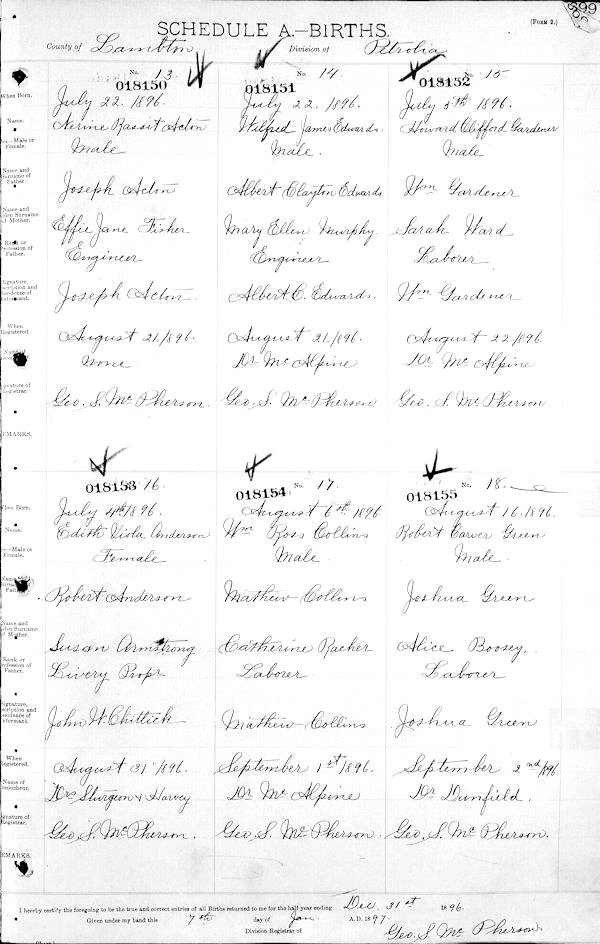 SCHEDULE A.—BIRTHS.
(FORM 2.)
County of Lambton Division of Petrolia
No. 13 No. 14. No. 15
018150 018151 018152
When Born. July 22. 1896. July 22. 1896. July 5th 1896.
Name. Nerine Rassit Acton Wilfred James Edwards. Howard Clifford Gardener
Sex—Male or Female. Male Male. Male
Name and Surname of Father. Joseph Acton Albert Clayton Edwards Wm Gardener
Name and Maiden Surname of Mother. Effie Jane Fisher Mary Ellen Murphy Sarah Ward
Rank or Profession of Father. Engineer Engineer Laborer
Signature, Description and Residence of Informant. Joseph Acton. Albert C. Edwards. Wm Gardener
When Registered. August 21./896. August 21./896. August 22/896.
Name of None Dr McAlpine Dr McAlpine
Signature of Registrar. Geo. S. McPherson. Geo. S. McPherson Geo. S. McPherson.
REMARKS.
018153 16. No. 17. No. 18.
018154 018155
When Born. July 4th 1896. August 6th. 1896 August 16. 1896.
Name. Edith Viola Anderson Wm Ross Collins Robert Carver Green
Sex—Male or Female. Female Male. Male.
Name and Surname of Father. Robert Anderson Mathew Collins Joshua Green
Name and Maiden Surname of Mother. Susan Armstrong Catherine Racher Alice Boosey.
Rank or Profession of Father. Livery Propr Laborer. Laborer
Signature, Description and Residence of Informant. John W. Chittick Mathew Collins Joshua Green
When Registered. August 31 /896. September 1st/896. September 2nd/896.
Name of Accoucheur. Drs Sturgeon & Harvey Dr McAlpine Dr Dunfield.
Signature of Registrar. Geo. S. McPherson. Geo. S. McPherson. Geo. S. McPherson.
REMARKS.
I hereby certify the foregoing to be the true and correct entries of all Births returned to me for the half year ending Dec. 31st 1896.
Given under my hand this 7th day of Jan. A.D. 1897.
Division Registrar of Geo. S. McPherson